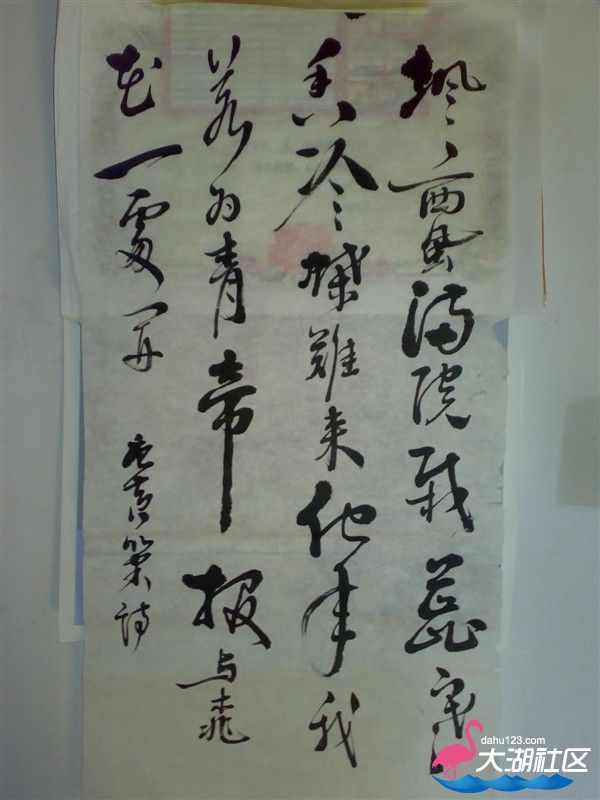 飒飒西风满院栽蕊寒
香冷蝶難来他年我
若为青帝报与桃
花一處开
唐黄巢詩
dahu123.com
大湖社区